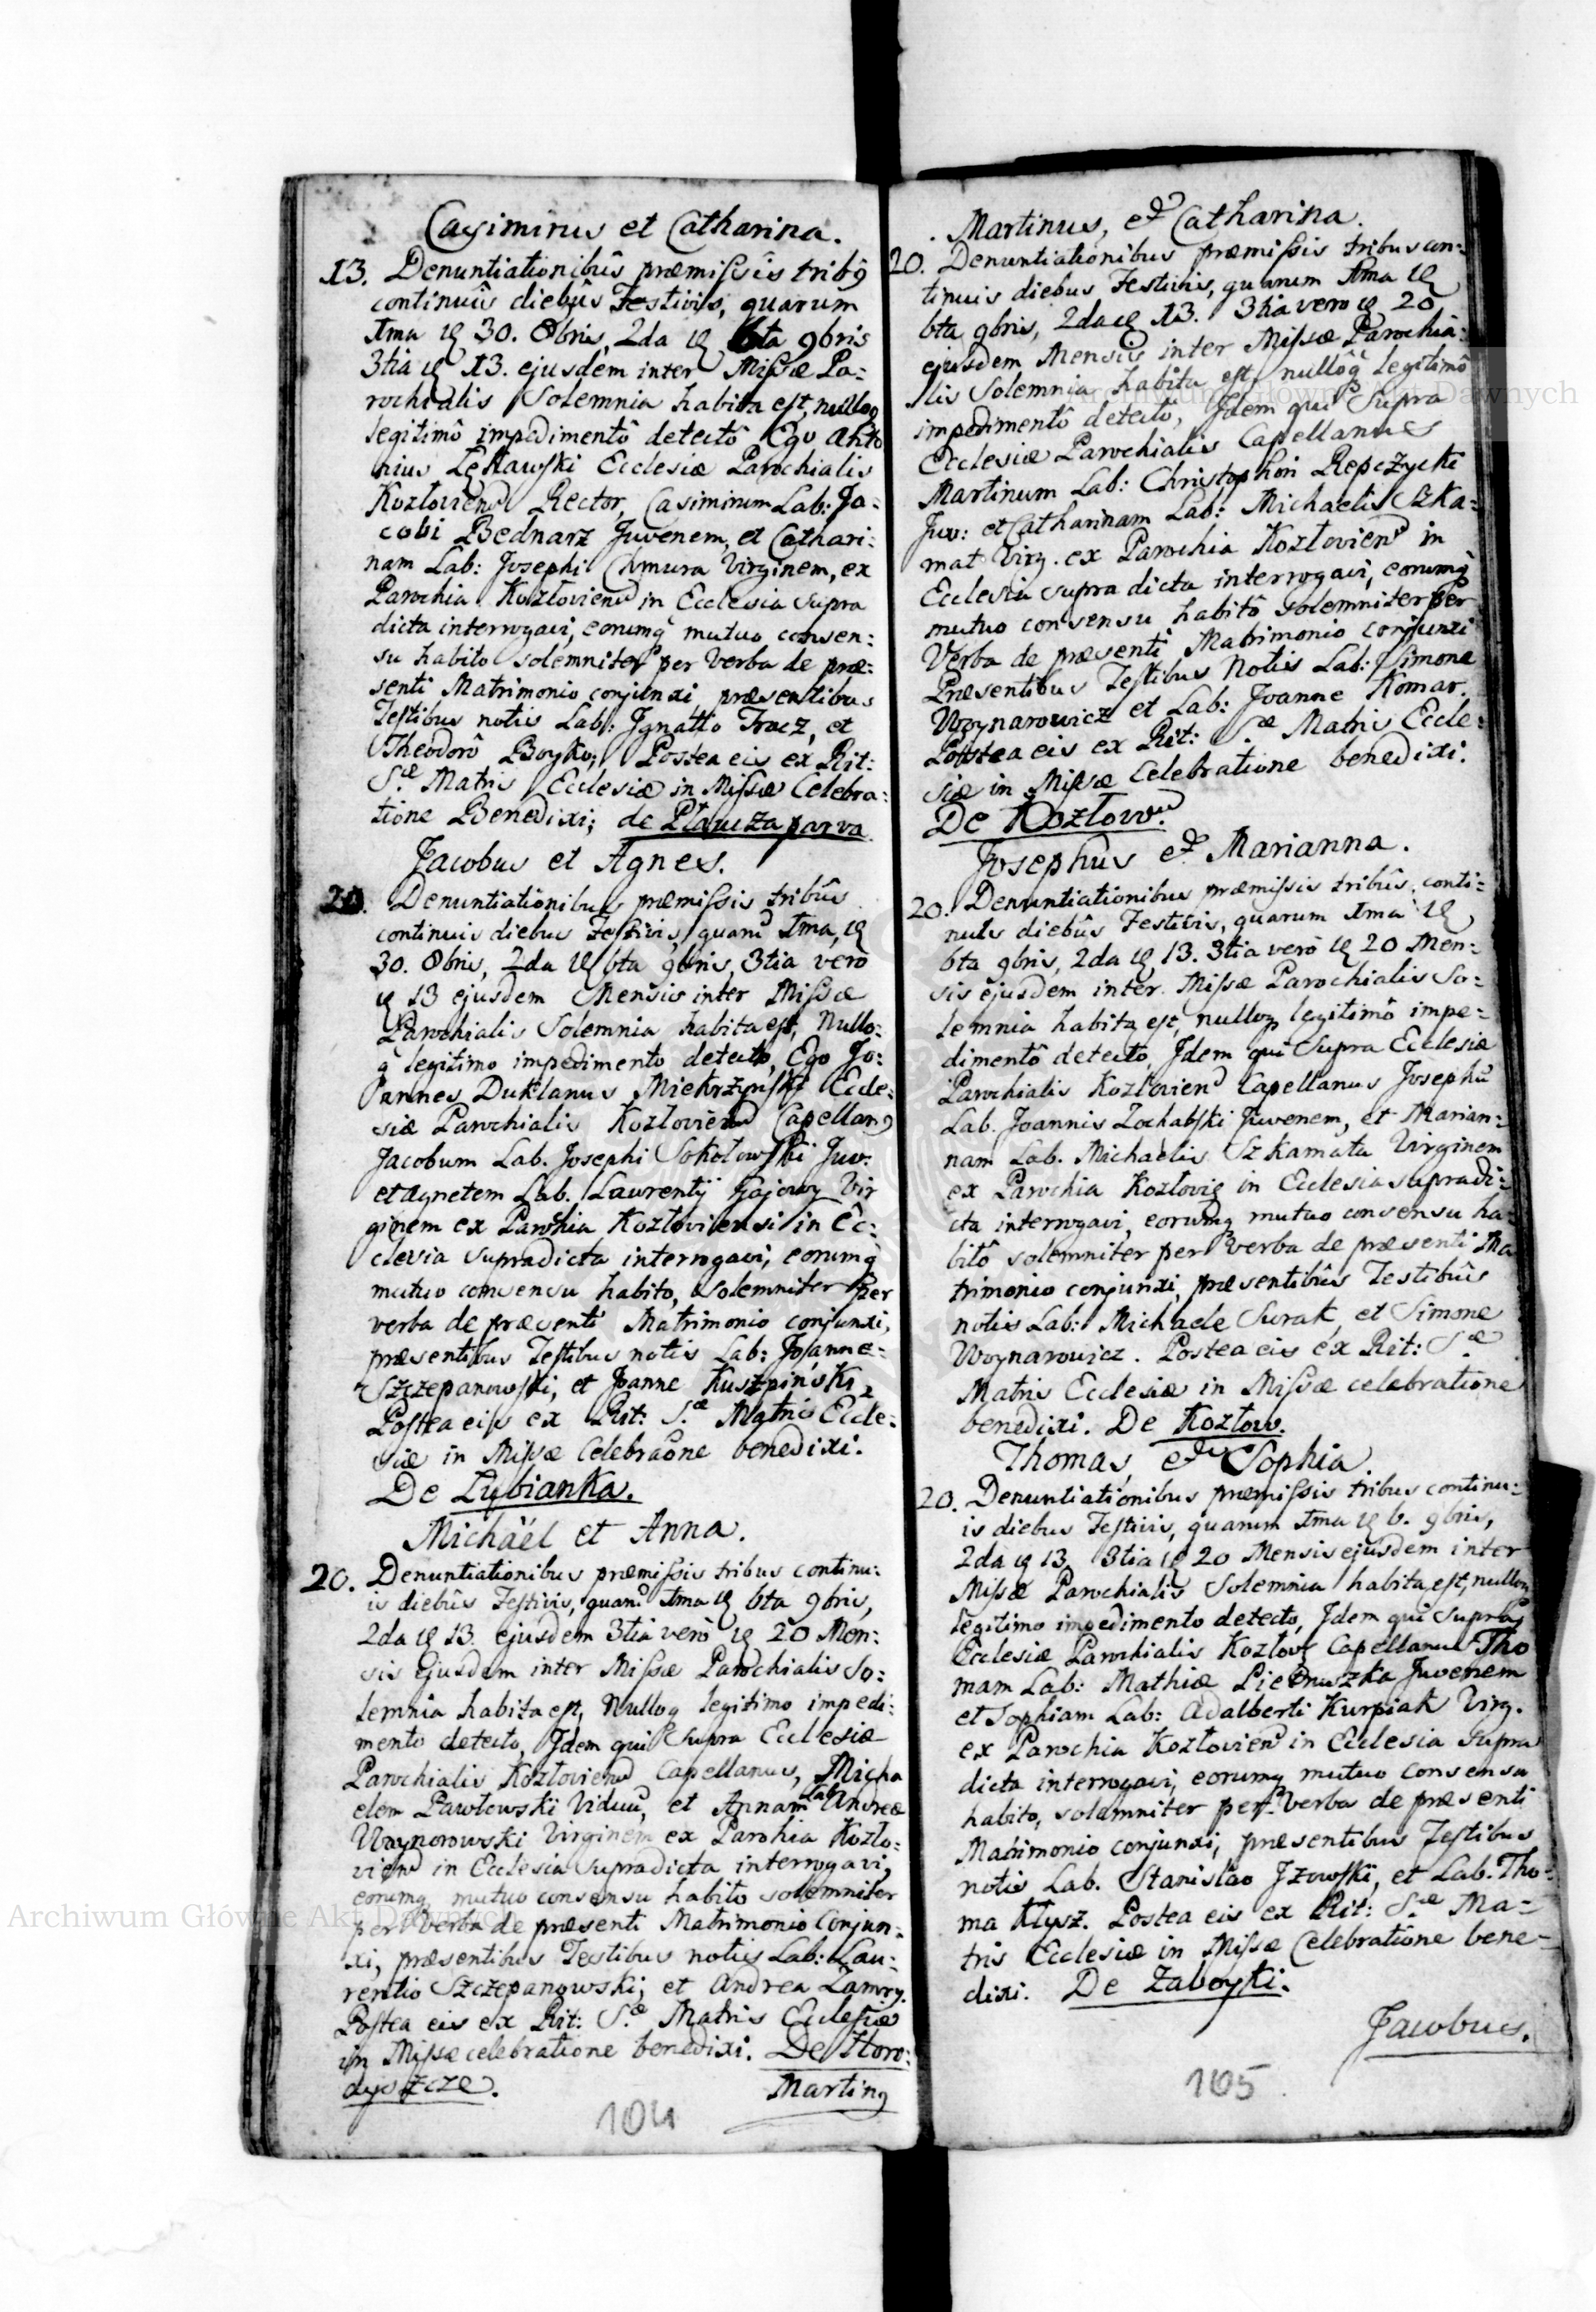 Casimirus et Catharina.
13. Denuntiationibûs præmissis tribq
continuis diebûs Festivis, quarum
1ma ıɐ 30. 8bris, 2da ıɐ 6ta 9bris
3tia ıɐ 13. ejusdem inter Missæ Pa=
rochialis Solemnia habita est, nulloq
legitimô impedimentô detectô Ego Anto
nius Ecclesiæ Parochialis
Kozłovien Rector, Casimirum Lab: Ja=
cobi Bednarz Juvenem, et Cathari=
nam Lab: Josephi Chmura Virginem, ex
Parochia Kozłovien in Ecclesia supra
dicta interrogavi, eorumq mutuo consen=
su habito solemniter per verba de præ=
senti Matrimonio conjunxi, præsentibus
Testibus notis Lab: Jgnatio Tracz, et
Theodorô Boyko; Postea eis ex Rit:
S.æ Matris Ecclesiæ in Missæ Celebra=
tione Benedixi; de Płaucza parva
Jacobus et Agnes.
20. Denuntiationibus præmissis tribûs
continuis diebus Festivis, quarum 1ma, ıɐ
30. 8bris, 2da ıɐ 6ta 9bris, 3tia verò
ıɐ 13 ejusdem Mensis inter Missæ
Parochialis Solemnia habita est, Nullo=
q legitimo impedimento detecto, Ego Jo=
annes Duklanus Miekrzynski Eccle=
siæ Parochialis Kozłovien Capellanq
Jacobum Lab. Josephi Sokołowski Juv:
et Agnetem Lab. Laurentij Gajowy Vir
ginem ex Parohia Kozłoviensi in Ec=
clesia supradicta interrogavi, eorumq
mutuo consensu habito, solemniter per
verba de præsenti Matrimonio conjunxi,
præsentibus Testibus notis Lab: Joanne
Szczepanowski, et Joanne Kuszpinski,
Postea eis ex Rit: S.æ Matris Eccle=
siæ in Missæ Celebraone benedixi.
De Łybianka.
Michäel et Anna.
20. Denuntiationibus præmissis tribus continu=
is diebûs Festivis, quaru 1ma ıɐ 6ta 9bris,
2da ıɐ 13. ejusdem 3tia verò ıɐ 20 Men=
sis ejusdem inter Missæ Parochialis So=
lemnia habita est, Nulloq legitimo impedi=
mento detecto, Jdem qui Supra Ecclesiæ
Parochialis Kozłovien Capellanus, Micha
elem Pawłowski Viduu, et Annam Lab: Andreæ
Woynorowski Virginem ex Parohia Kozło=
vien in Ecclesia supradicta interrogavi,
eorumq mutuo consensu habito solemniter
per Verba de præsenti Matrimonio Conjun=
xi, præsentibus Testibus notis Lab: Lau=
rentio Szczepanowski; et Andrea Zamry.
Postea eis ex Rit: S.æ Matris Ecclesiæ
in Missæ celebratione benedixi. De Horo=
dyszcze.
Martinq
104
Martinus, et Catharina.
20. Denuntiationibus præmissis tribus con=
tinuis diebus Festivis, quarum 1ma ıɐ
6ta 9bris, 2da ıɐ 13. 3tia vero ıɐ 20
ejusdem Mensis inter Missæ Parochia=
lis Solemnia habita est, nullôq legitimô
impedimentô detecto, Jdem qui Supra
Ecclesiæ Parochialis Capellanus
Martinum Lab: Christophori Repczycki
Juv: et Catharinam Lab: Michaelis Szka=
mat Virg. ex Parochia Kozłovien in
Ecclesia supra dicta interrogavi, eorumq
mutuo consensu habitô solemniter per
Verba de præsenti Matrimonio conjunxi
Præsentibus Testibus Notis Lab: Simone
Woynarowicz et Lab: Joanne Komar.
Postea eis ex Rit: S.æ Matris Eccle=
siæ in Missæ Celebratione benedixi.
De Kozłow.
Josephûs et Marianna.
20. Denuntiationibus præmissis tribûs conti=
nuis diebûs Festivis, quarum 1ma ıɐ
6ta 9bris, 2da ıɐ 13. 3tia verò ıɐ 20 Men=
sis ejusdem inter Missæ Parochialis So=
lemnia habita est, nulloq legitimô impe=
dimentô detecto, Jdem qui Supra Ecclesiæ
Parochialis Kozłovien Capellanus Josephu
Lab. Joannis Juvenem, et Marian=
nam Lab. Michaëlis Szkamata Virginem
ex Parochia Kozłovie in Ecclesia supradi=
cta interrogavi, eorumq mutuo consensu ha=
bitô solemniter per Verba de præsenti Ma
trimonio conjunxi, præsentibûs Testibûs
notis Lab: Michaele Surak, et Simone
Woynarowicz. Postea eis ex Rit: S.æ
Matris Ecclesiæ in Missæ celebratione
benedixi. De Kozłow.
Thomas, et Sophia
20. Denuntiationibus præmissis tribus continu=
is diebus Festivis, quarum 1ma ıɐ 6. 9bris,
2da ıɐ 13, 3tia ıɐ 20 Mensis ejusdem inter
Missæ Parochialis Solemnia habita est, nulloq
legitimo impedimento detecto, Jdem qui Supra
Ecclesiæ Parochialis Kozłov Capellanus Tho
mam Lab: Mathiæ Juvenem
et Sophiam Lab: Adalberti Kurpiak Virg.
ex Parochia Kozłovien in Ecclesia supra
dicta interrogavi, eorumq mutuo consensu
habito, solemniter per Verba de præsenti
Matrimonio conjunxi, præsentibus Testibus
notis Lab. Stanislao Jzowski, et Lab. Tho=
ma Kłysz. Postea eis ex Rit: S.æ Ma=
tris Ecclesiæ in Missæ Celebratione bene=
dixi. De Zaboyki.
Jacobus.
105
Archiwum Główne Akt Dawnych
Archiwum Główne Akt Dawnych